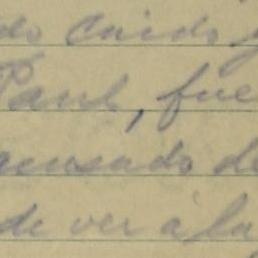 do Caido y
Paul, fue
acusado de
de ver à la